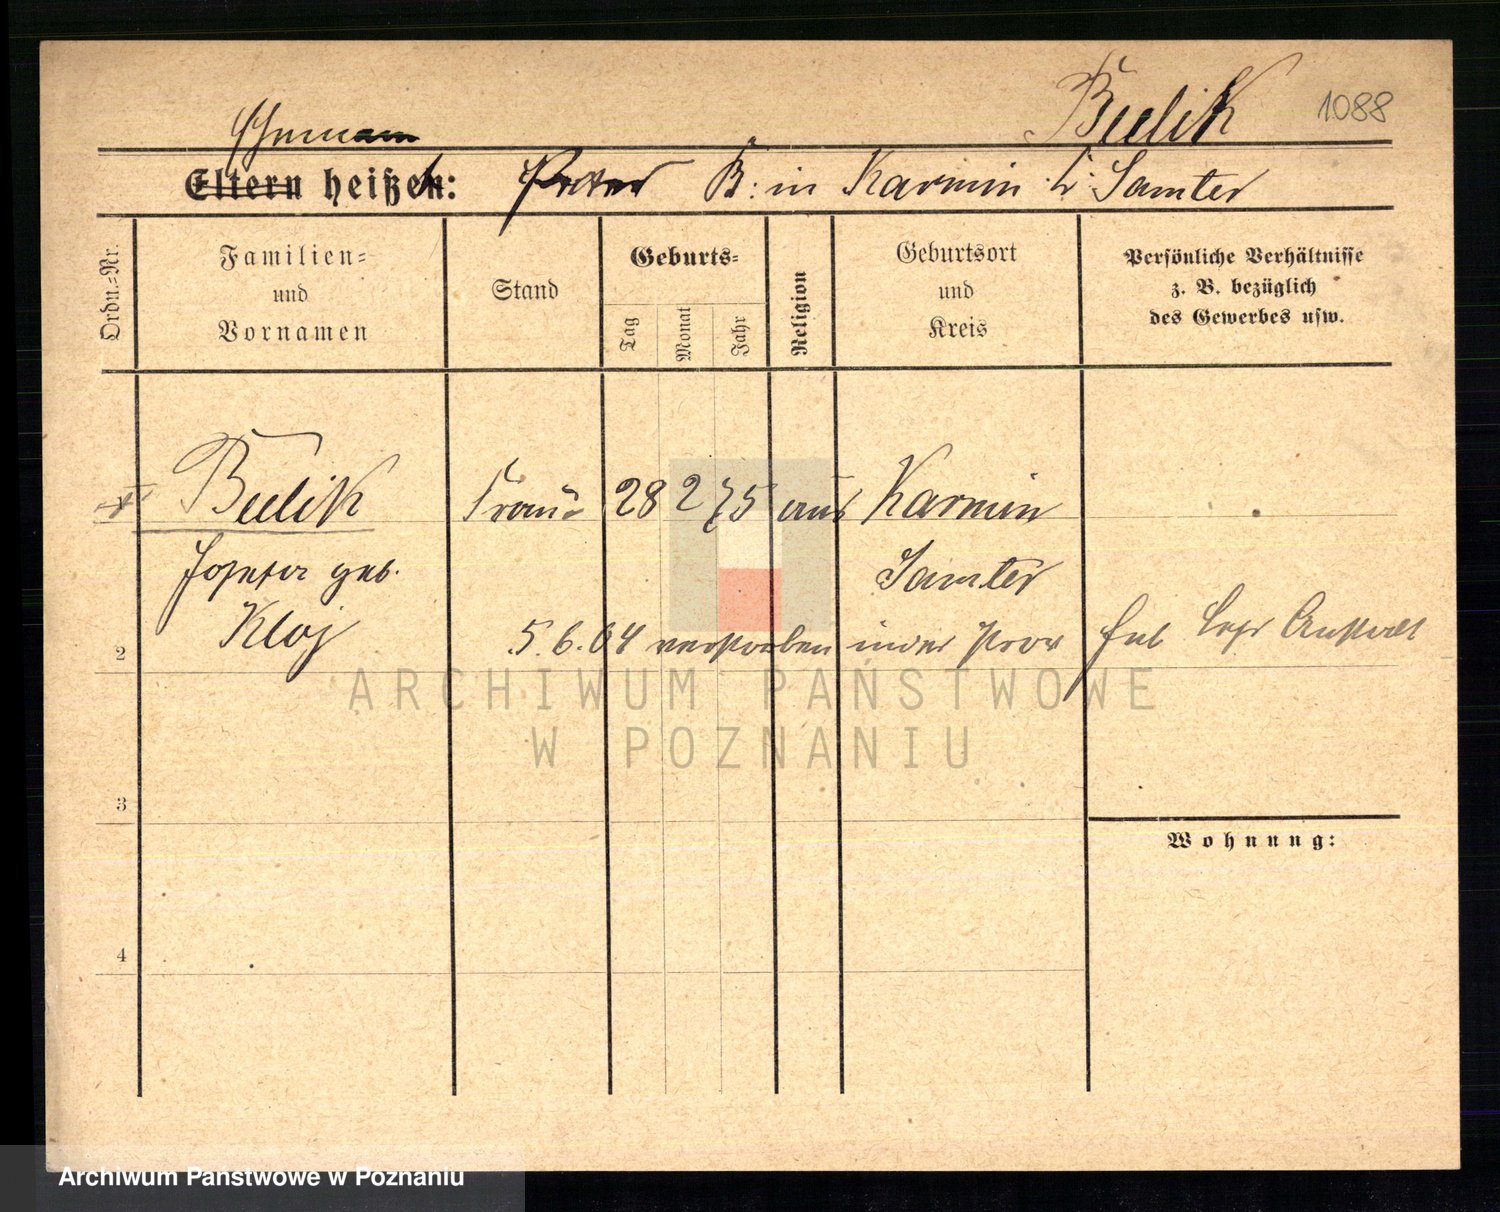 Bulik 1088
Ehemann
Eltern heißen: Peter B: in Karmin b: Samter
Ordn.=Nr.
Familien=
und
Vornamen
Stand
Geburts=
Tag
Monat
Jahr
Religion
Geburtsort
und
Kreis
Persönliche Verhältnisse
z. B. bezüglich
des Gewerbes usw.
Bulik Frau 28 2 75 aus Karmin
Josefa geb. Samter
Kloj
2 5.6.04 verstorben in der Prov
3
Wohnung:
4
ARCHIWUM PAŃSTWOWE
W POZNANIU
Archiwum Państwowe w Poznaniu